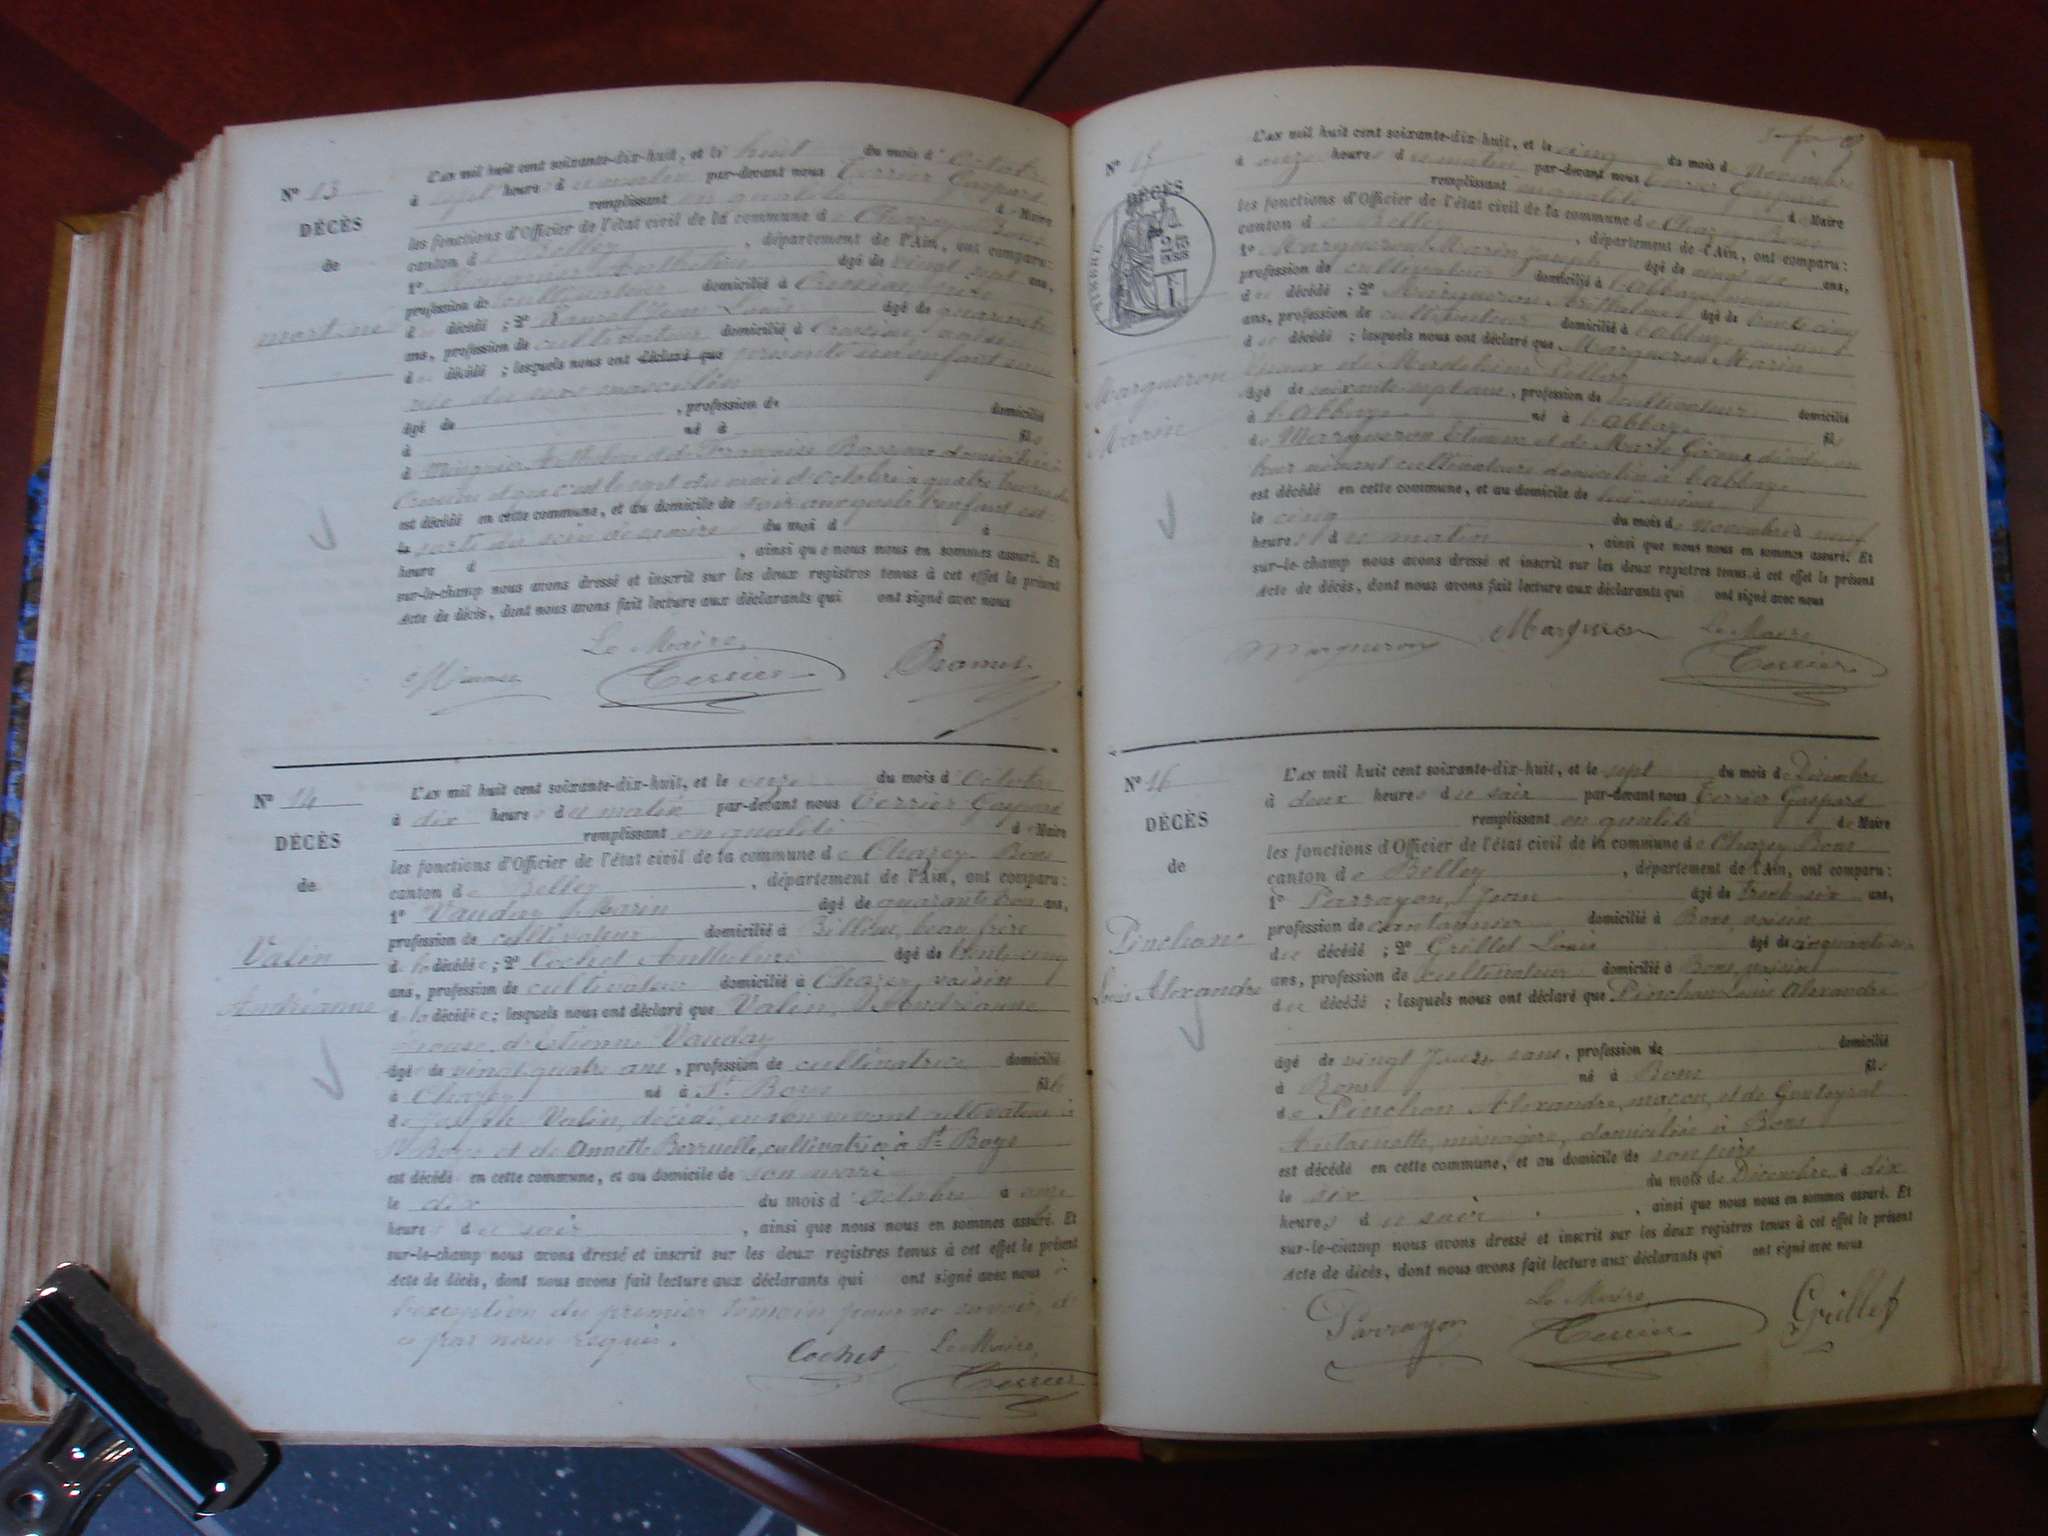 N° 13
DÉCÈS
de
mort-né
L'an mil huit cent soixante-dix-huit, et le huit du mois d'Octobre
à sept heures du matin par-devant nous Terrier Gaspard
remplissant en qualité de Maire
les fonctions d'Officier de l'état civil de la commune de Chazey-Bons
canton de Belley, département de l'Ain, ont comparu:
1° Anthelme âgé de vingt sept ans,
profession de cultivateur domicilié à
d décédé; 2° Jean Louis âgé de quarante
ans, profession de cultivateur domicilié à
d décédé; lesquels nous ont déclaré que présenté un enfant sans
vie du sexe masculin
âgé de , profession de domicilié
à né à fils
à Anthelme et de Françoise domiciliés à
et que c'est le sept du mois d'Octobre à quatre heures du
est décédé en cette commune, et au domicile de soir auxquels l'enfant est
le sorti du sein de sa mère du mois d à
heure d , ainsi que nous nous en sommes assuré. Et
sur-le-champ nous avons dressé et inscrit sur les deux registres tenus à cet effet le présent
Acte de décès, dont nous avons fait lecture aux déclarants qui ont signé avec nous
Le Maire,
Terrier
N° 14
DÉCÈS
de
Valin
Andrianne
L'an mil huit cent soixante-dix-huit, et le onze du mois d'Octobre
à dix heures du matin par-devant nous Terrier Gaspard
remplissant en qualité de Maire
les fonctions d'Officier de l'état civil de la commune de Chazey-Bons
canton de Belley, département de l'Ain, ont comparu:
1° Vauday Marin âgé de quarante trois ans,
profession de cultivateur domicilié à Billieu, beau frère
de la décédée; 2° Cochet Anthelme âgé de trente cinq
ans, profession de cultivateur domicilié à Chazey, voisin
de la décédée; lesquels nous ont déclaré que Valin, Andrianne
épouse d'Etienne Vauday
âgé de vingt quatre ans, profession de cultivatrice domicilié
à Chazey né à St Bois fille
de Joseph Valin, décédé, en son vivant cultivateur à
St Bois et de Annette Berruelle, cultivatrice à St Boys
est décédé en cette commune, et au domicile de son mari
le dix du mois d'Octobre à onze
heures du soir, ainsi que nous nous en sommes assuré. Et
sur-le-champ nous avons dressé et inscrit sur les deux registres tenus à cet effet le présent
Acte de décès, dont nous avons fait lecture aux déclarants qui ont signé avec nous à
l'exception du premier témoin pour ne savoir, de
ce par nous requis.
Cochet Le Maire,
Terrier
N° 15
DÉCÈS
TIMBRE
Margueron
Marin
L'an mil huit cent soixante-dix-huit, et le cinq du mois de Novembre
à onze heures du matin par-devant nous Terrier Gaspard
remplissant en qualité de Maire
les fonctions d'Officier de l'état civil de la commune de Chazey-Bons
canton de Belley, département de l'Ain, ont comparu:
1° Margueron Marin Joseph âgé de vingt six ans,
profession de cultivateur domicilié à l'Abbaye, cousin
du décédé; 2° Margueron Anthelme âgé de trente cinq
ans, profession de cultivateur domicilié à l'abbaye, cousin
du décédé; lesquels nous ont déclaré que Margueron Marin
époux de Madeleine
âgé de soixante-sept ans, profession de cultivateur domicilié
à l'Abbaye né à l'abbaye fils
de Margueron Etienne et de Marte décédés, en
leur vivant cultivateurs domiciliés à l'abbaye
est décédé en cette commune, et au domicile de lui même
le cinq du mois de Novembre à neuf
heures du matin, ainsi que nous nous en sommes assuré. Et
sur-le-champ nous avons dressé et inscrit sur les deux registres tenus à cet effet le présent
Acte de décès, dont nous avons fait lecture aux déclarants qui ont signé avec nous
Margueron Margueron Le Maire
Terrier
N° 16
DÉCÈS
de
Pinchon
Louis Alexandre
L'an mil huit cent soixante-dix-huit, et le sept du mois de Décembre
à deux heures du soir par-devant nous Terrier Gaspard
remplissant en qualité de Maire
les fonctions d'Officier de l'état civil de la commune de Chazey-Bons
canton de Belley, département de l'Ain, ont comparu:
1° Parrayon, Jean âgé de trente-six ans,
profession de cantonnier domicilié à Bons, voisin
du décédé; 2° Grillet Louis âgé de cinquante-six
ans, profession de cultivateur domicilié à Bons, voisin
du décédé; lesquels nous ont déclaré que Pinchon Louis Alexandre
âgé de vingt jours, sans, profession de domicilié
à Bons né à Bons fils
de Pinchon Alexandre, maçon, et de Gouteyral
Antoinette, ménagère, domiciliés à Bons
est décédé en cette commune, et au domicile de son père
le six du mois de Décembre à dix
heures du soir, ainsi que nous nous en sommes assuré. Et
sur-le-champ nous avons dressé et inscrit sur les deux registres tenus à cet effet le présent
Acte de décès, dont nous avons fait lecture aux déclarants qui ont signé avec nous
Parrayon Le Maire, Grillet
Terrier